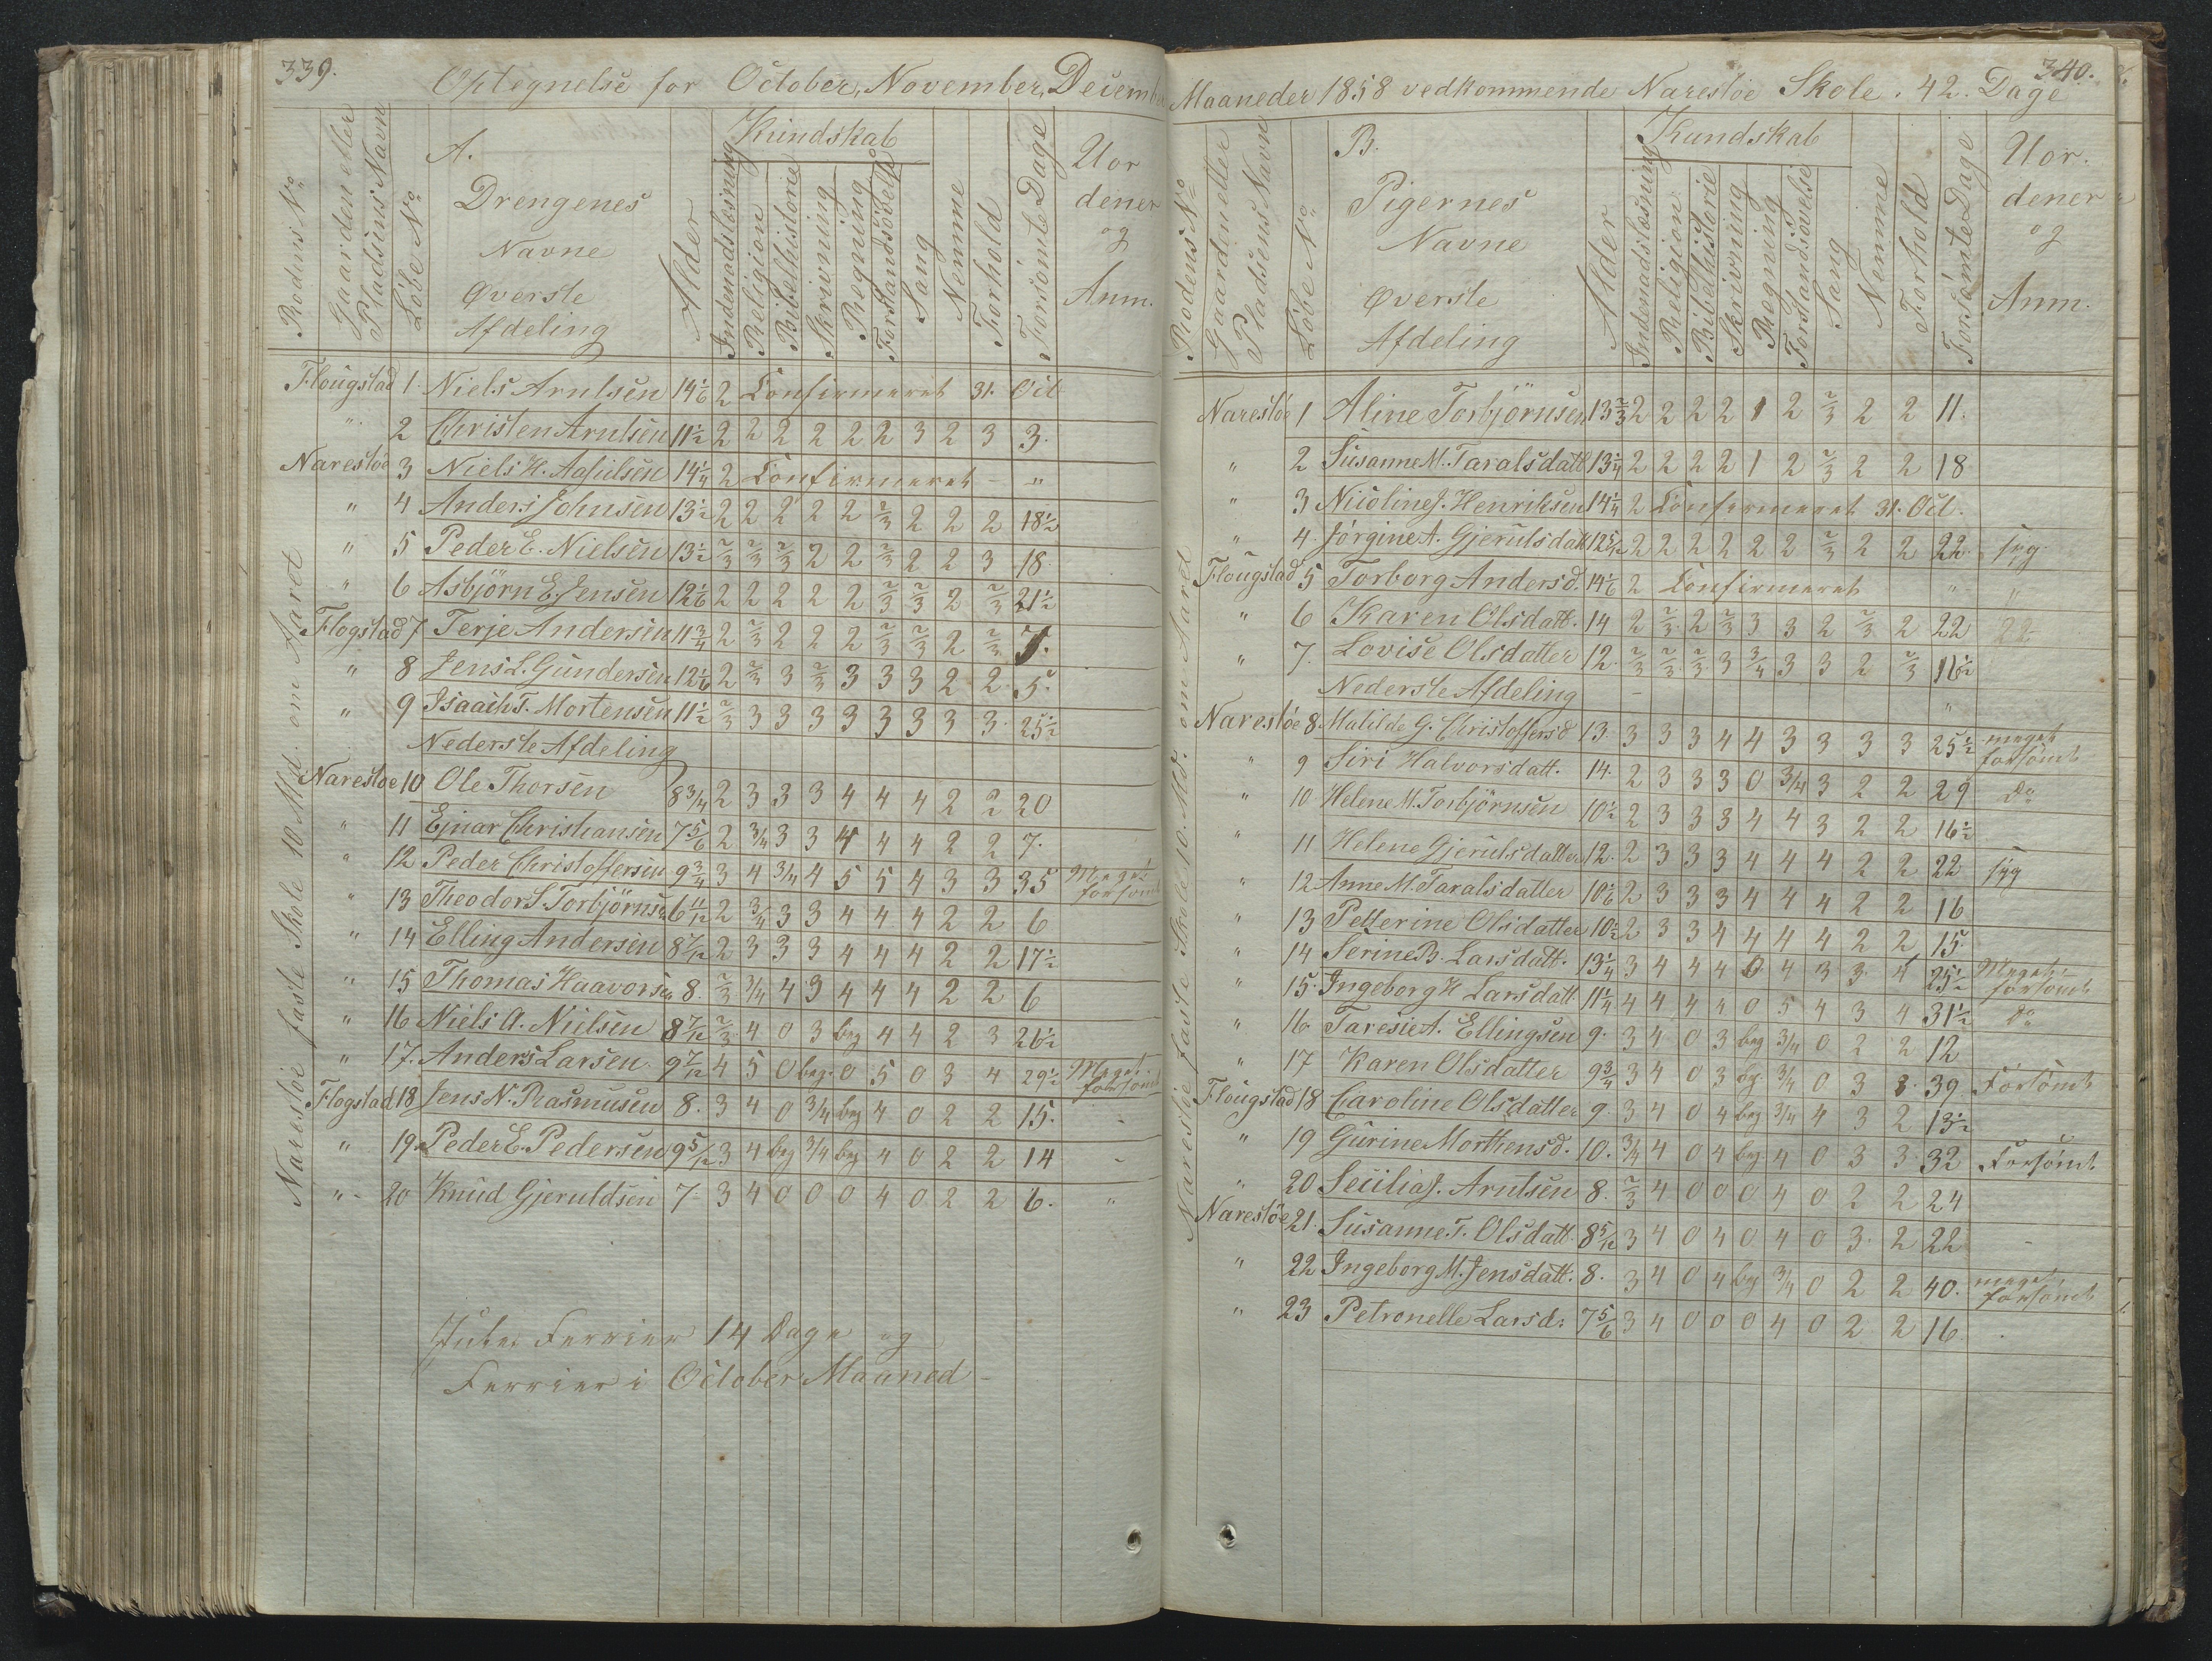 339.
Optegnelse for October, November, December
Rodens No
Gaarden eller Pladsens Navn
Löbe No
A.
Drengenes
Navne
Øverste
Afdeling
Alder
Kundskab
Indenadslæsning
Religion
Bibelhistorie
Skrivning
Regning
Forstandsövelse
Sang
Nemme
Forhold
Forsömte Dage
Uor
dener
og
Anm.
Narestöe faste Skole 10 Md. om Aaret
Flougstad 1 Niels Arntsen 14 1/6 2 Confirmeret 31. Oct
" 2 Christen Arntsen 11 1/2 2 2 2 2 2 2 3 2 3 3.
Narestöe 3 Niels H. 14 1/4 2 Confirmeret - "
" 4 Anders Johnsen 13 1/2 2 2 2 2 2 2/3 2 2 2 18 1/2
" 5 Peder E. Nielsen 13 1/2 2/3 2/3 2/3 2 2 2/3 2 2 3 18
" 6 Asbjörn E. Jensen 12 1/6 2 2 2 2 2 2/3 2/3 2 2/3 21 1/2
Flogstad 7 Terje Andersen 11 3/4 2 2/3 2 2 2 2/3 2/3 2 2/3 7.
" 8 Jens L. Gundersen 12 1/6 2 2/3 3 2/3 3 3 3 2 2 5.
" 9 Isaach T. Mortensen 11 1/2 2/3 3 3 3 3 3 3 3 3 25 1/2
Nederste Afdeling
Narestöe 10 Ole Thorsen 8 3/4 2 3 3 3 4 4 4 2 2 20
" 11 Ejnar Christiansen 7 5/6 2 3/4 3 3 4 4 4 2 2 7.
" 12 Peder Christoffersen 9 3/4 3 4 3/4 4 5 5 4 3 3 35 Meget forsömt
" 13 Theodor S. Torbjörnsen 6 11/12 2 3/4 3 3 4 4 4 2 2 6
" 14 Elling Andersen 8 7/12 2 3 3 3 4 4 4 2 2 17 1/2
" 15 Thomas Haavorsen 8. 2/3 3/4 4 3 4 4 4 2 2 6
" 16 Niels A. Nielsen 8 7/12 2/3 4 0 3 beg 4 4 2 3 26 1/2
" 17. Anders Larsen 9 7/12 4 5 0 beg. 0 5 0 3 4 29 1/2 Meget forsömt
Flogstad 18 Jens N. Rasmusen 8. 3 4 0 3/4 beg 4 0 2 2 15. -
" 19 Peder E. Pedersen 9 5/12 3 4 beg 3/4 beg 4 0 2 2 14 -
" 20 Knud Gjeruldsen 7 - 3 4 0 0 0 4 0 2 2 6. "
Jule Ferrier 14 Dage og
Ferrier i October Maaned -
340.
Maaneder 1858 vedkommende Narestöe Skole. 42. Dage
Rodens No
Gaarden eller Pladsens Navn
Löbe No
B.
Pigernes
Navne
Øverste
Afdeling
Alder
Kundskab
Indenadslæsning
Religion
Bibelhistorie
Skrivning
Regning
Forstandsövelse
Sang
Nemme
Forhold
Forsömte Dage
Uor.
dener
og
Anm.
Narestöe faste Skole 10. Md. om Aaret
Narestöe 1 Aline Torbjörnsen 13 2/3 2 2 2 2 1 2 2/3 2 2 11.
" 2 Susanne M. Taralsdatt 13 1/4 2 2 2 2 1 2 2/3 2 2 18
" 3 Nicoline J. Henriksen 14 1/4 2 Confirmeret 31. Oct.
" 4. Jörgine A. Gjerulsdatt 12 5/12 2 2 2 2 2 2 2/3 2 2 22 syg
Flougstad 5 Torborg Andersd. 14 1/6 2 Confirmeret " "
" 6 Karen Olsdatt. 14 2 2/3 2 2/3 3 3 2 2/3 2 22 22
" 7. Lovise Olsdatter 12. 2/3 2/3 2/3 3 3/4 3 3 2 2/3 16 1/2
Nederste Afdeling
Narestöe 8 Matilde G. Christoffersd 13 3 3 3 4 4 3 3 3 3 25 1/2 meget forsömt
" 9 Siri Halvorsdatt. 14. 2 3 3 3 0 3/4 3 2 2 29 do
" 10 Helene M. Torbjörnsen 10 1/2 2 3 3 3 4 4 3 2 2 16 1/2
" 11 Helene Gjerulsdatter 12. 2 3 3 3 4 4 4 2 2 22 syg
" 12 Anne M. Taralsdatter 10 1/6 2 3 3 3 4 4 4 2 2 16
" 13 Petterine Olsdatter 10 1/2 2 3 3 4 4 4 4 2 2 15.
" 14 Serine B. Larsdatt. 13 1/4 3 4 4 4 0 4 3 3 4 25 1/2 Meget forsömt
" 15. Ingeborg H Larsdatt 11 1/4 4 4 4 4 0 5 4 3 4 31 1/2 do
" 16 Taresie A. Ellingsen 9. 3 4 0 3 beg 3/4 0 2 2 12
" 17 Karen Olsdatter 9 3/4 3 4 0 3 beg 3/4 0 3 3 39 Forsömt
Flougstad 18 Caroline Olsdatter 9. 3 4 0 4 beg 3/4 4 3 2 13 1/2
" 19 Gurine Morthensd. 10. 3/4 4 0 4 beg 4 0 3 3 32 Forsömt
" 20 Secilia J. Arntsen 8. 2/3 4 0 0 0 4 0 2 2 24
Narestöe 21. Susanne T. Olsdatt. 8 5/12 3 4 0 4 0 4 0 3 2 22 -
" 22 Ingeborg M. Jensdatt. 8. 3 4 0 4 beg 3/4 0 2 2 40. meget forsömt
" 23 Petronelle Larsd. 7 5/6 3 4 0 0 0 4 0 2 2 16